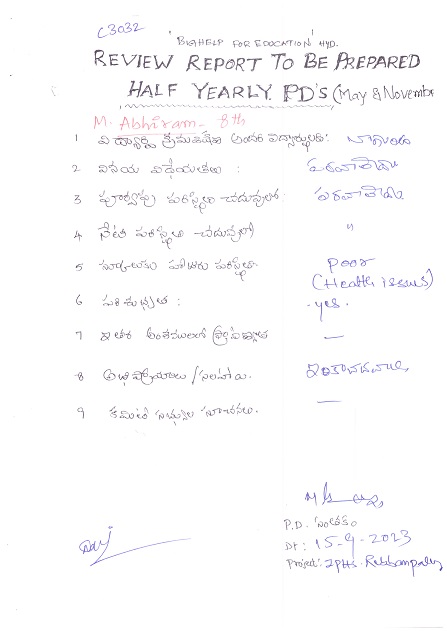 C3032
"BIGHELP FOR EDUCATION" HYD.
REVIEW REPORT TO BE PREPARED
HALF YEARLY PD'S (May & November
M. Abhiram - 8th
1 విద్యార్థి క్రమశిక్షణ అందరి విద్యార్థులకు: బాగుంది
2 వినయ విధేయతలు : పరవాలేదు
3 పూర్వాపు పరిస్థితి చదువులో: పరవాలేదు
4 నేటి పరిస్థితి చదువులో "
5 స్కూలుకు హాజరు పరిస్థితి Poor
(Health issues)
6 పరిశుభ్రత : -yes.
7 ఇతర అంశములలో ప్రావీణ్యత —
8 అభిప్రాయాలు / సలహా. ఇంకా చదవాలి
9 కమిటీ సభ్యుల సూచనలు. —
P.D. సంతకం
Dt: 15-9-2023
Project: ZPHS. Rebbampally